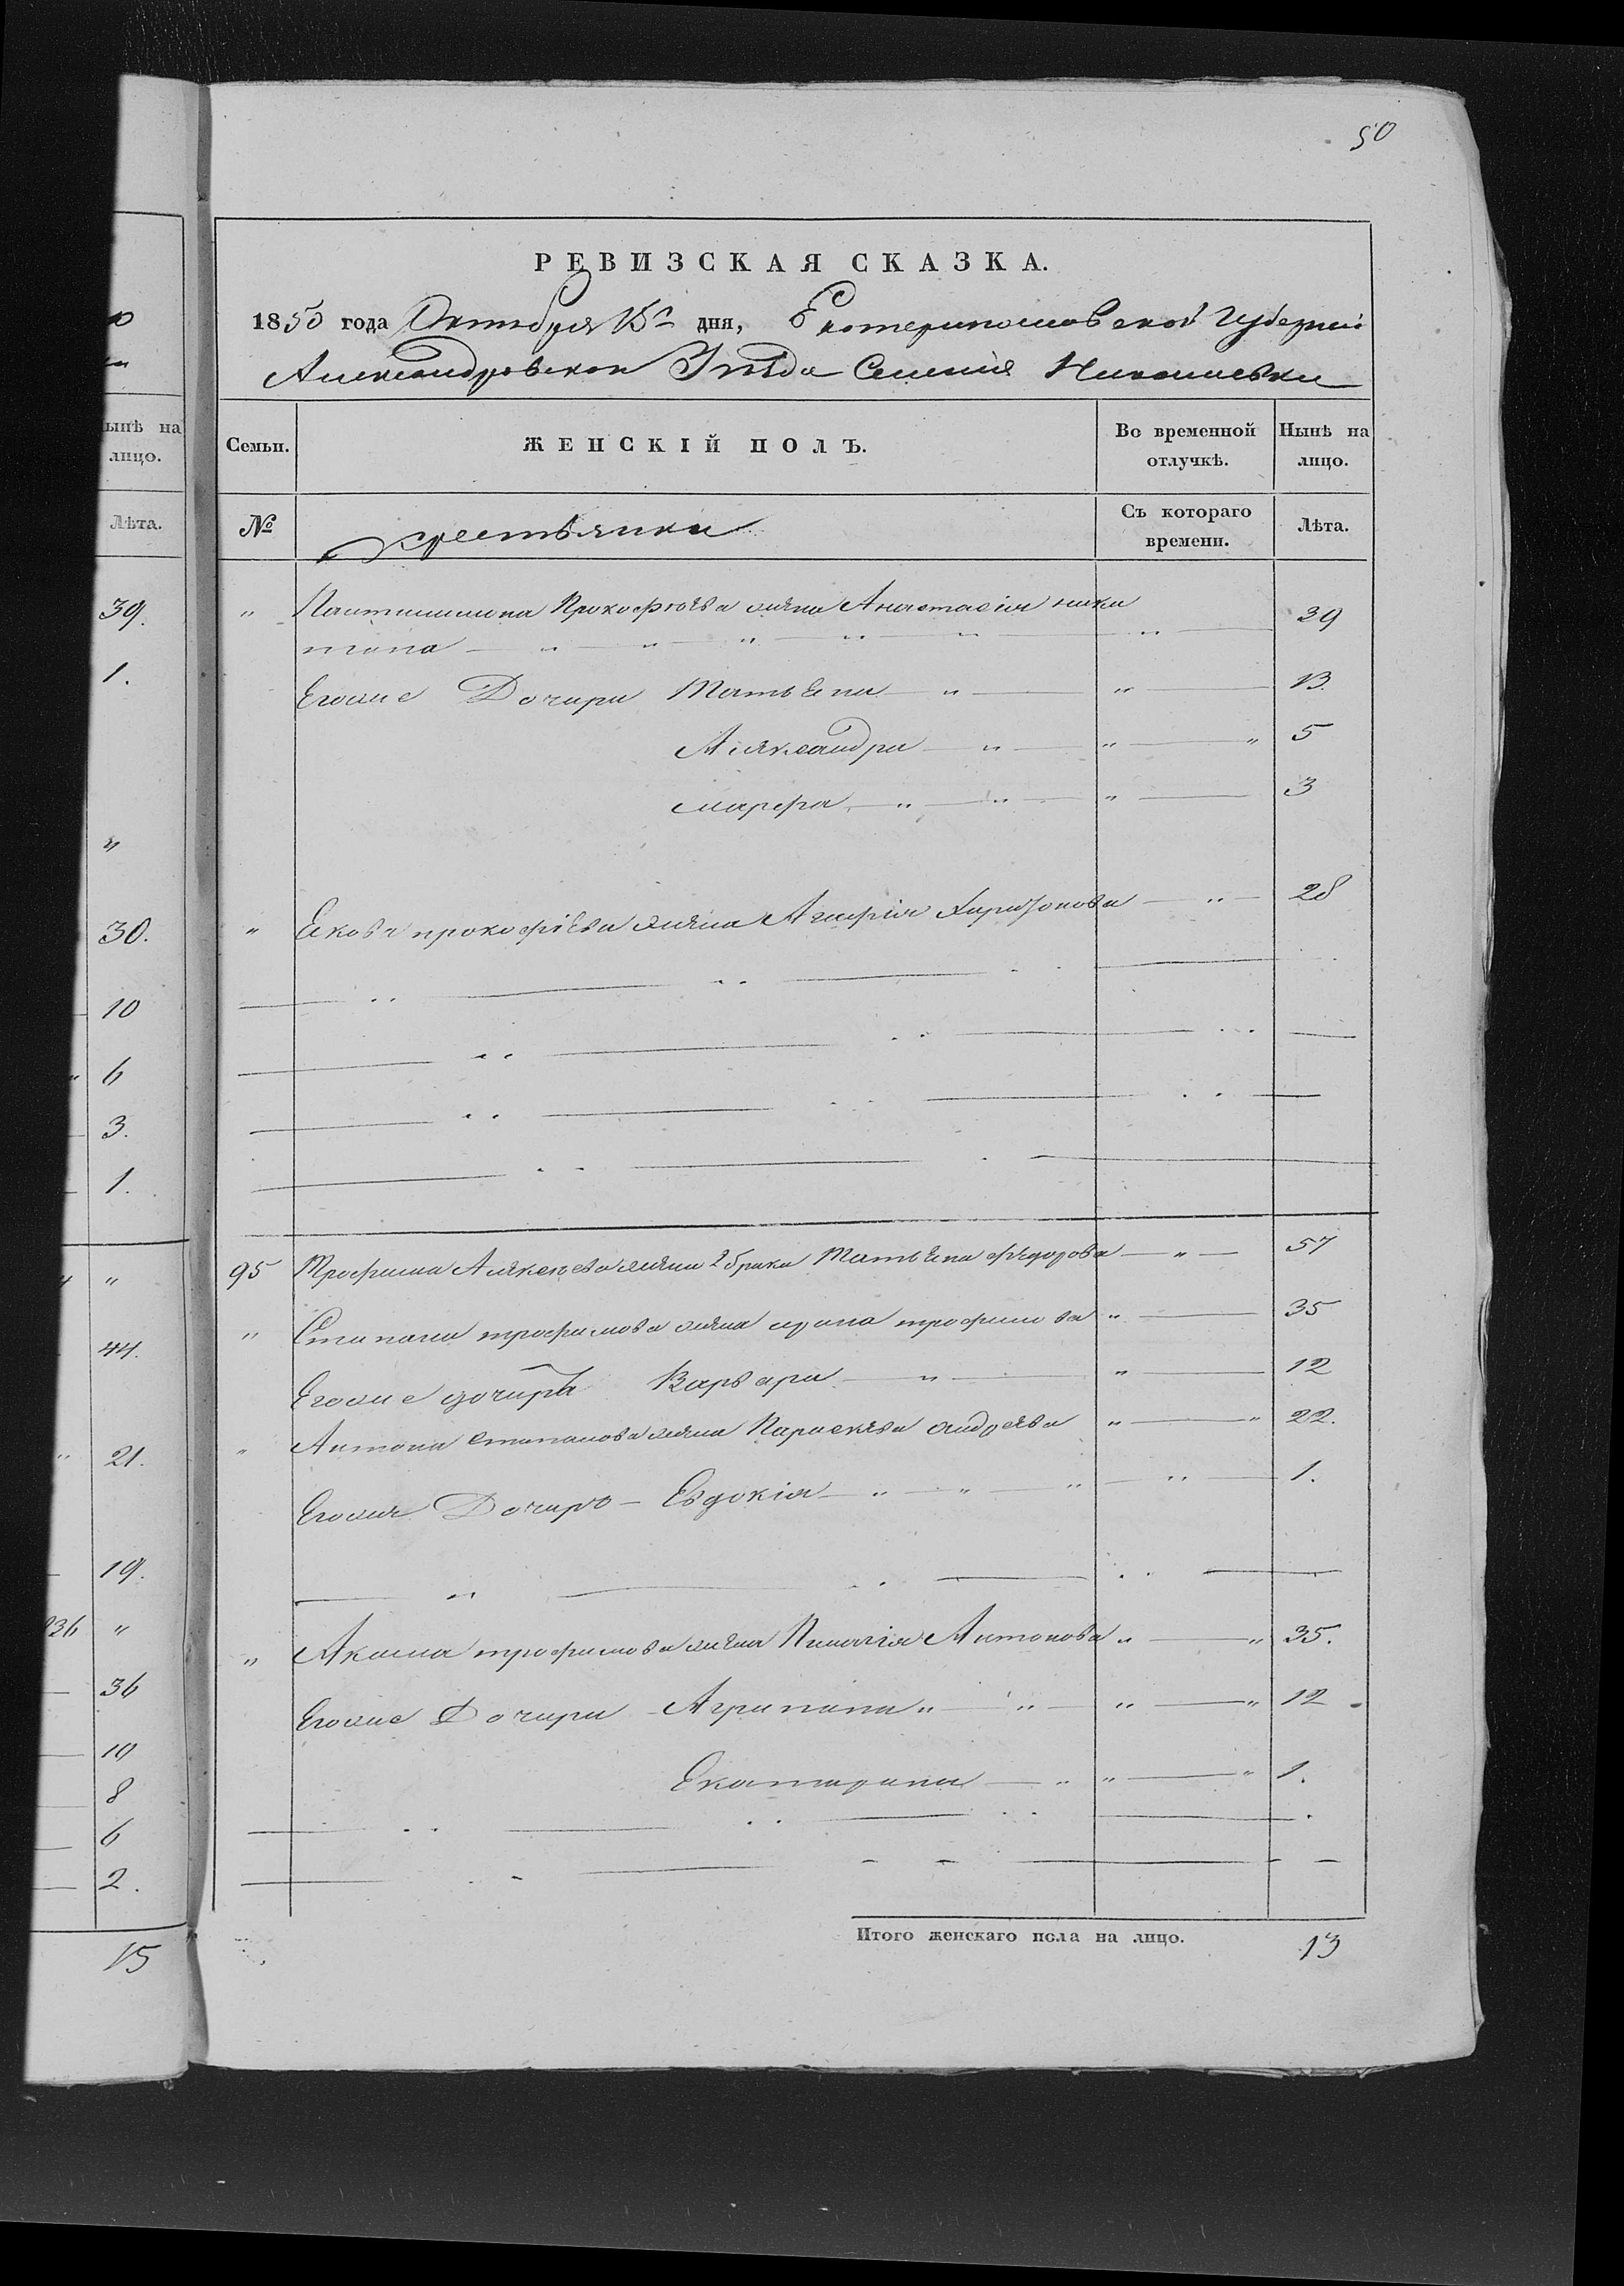 50
РЕВИЗСКАЯ СКАЗКА.
1850 года Октября 15го дня, Екатеринославской Губернии
Александровскои Уѣзда Селения Николаевки
Семьи. ЖЕНСКІЙ ПОЛЪ. Во временной отлучкѣ. Нынѣ на лицо.
№ крестьянки Съ котораго времени. Лѣта.
" Прокофюева жина Анастасия ники
тина 39
Егоже Дочири Татьѣна " " 13.
Алѣксандра " " " 5
марфа " " " 3
" Ековa прокофіева жина Агафія Харитонова " 28
95 Трофима Алѣксѣева жина 2 брака Татьѣна фѣдорова " 57
" Стипана трофимова жина ирина трофимова " 35
Егоже дочирь Варвара " " 12
" Антона стипанова жина Параскѣва андрѣева " " 22.
Егожи Дочиръ - Евдокія " " " " 1.
" Акима трофимова жина Пилагія Антонова " " 35.
Егоже Дочири Агрипина " " " " 12
Екатирина " " " 1.
Итого женскаго пола на лицо. 13
ынѣ на
лицо.
Лѣта.
39.
1.
"
30.
10
6
3.
1.
"
44.
21.
19.
836 "
36
10
8
6
2.
15